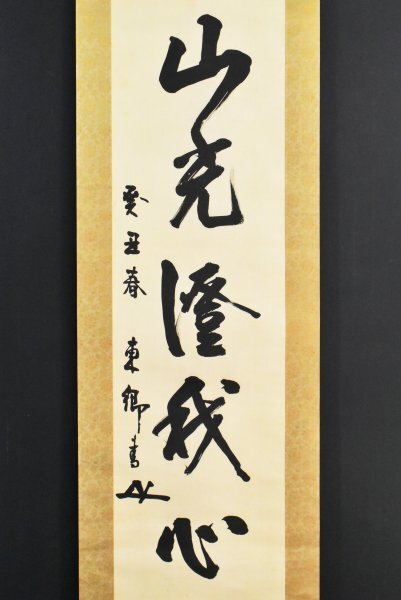 山光澄我心
癸丑春 東郷書